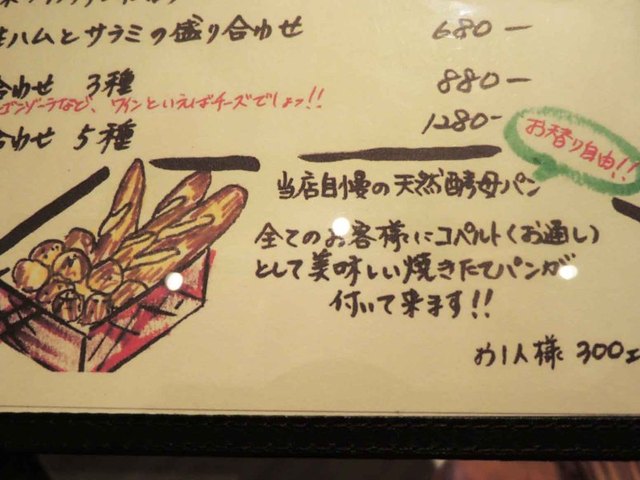 生ハムとサラミの盛り合わせ 680ー
合わせ 3種 880ー
ゴンゾーラなど、ワインといえばチーズでしょ!!
合わせ 5種 1280-
お替り自由!!
当店自慢の天然酵母パン
全てのお客様にコペルト(お通し)
として美味しい焼きたてパンが
付いて来ます!!
お1人様 300エ